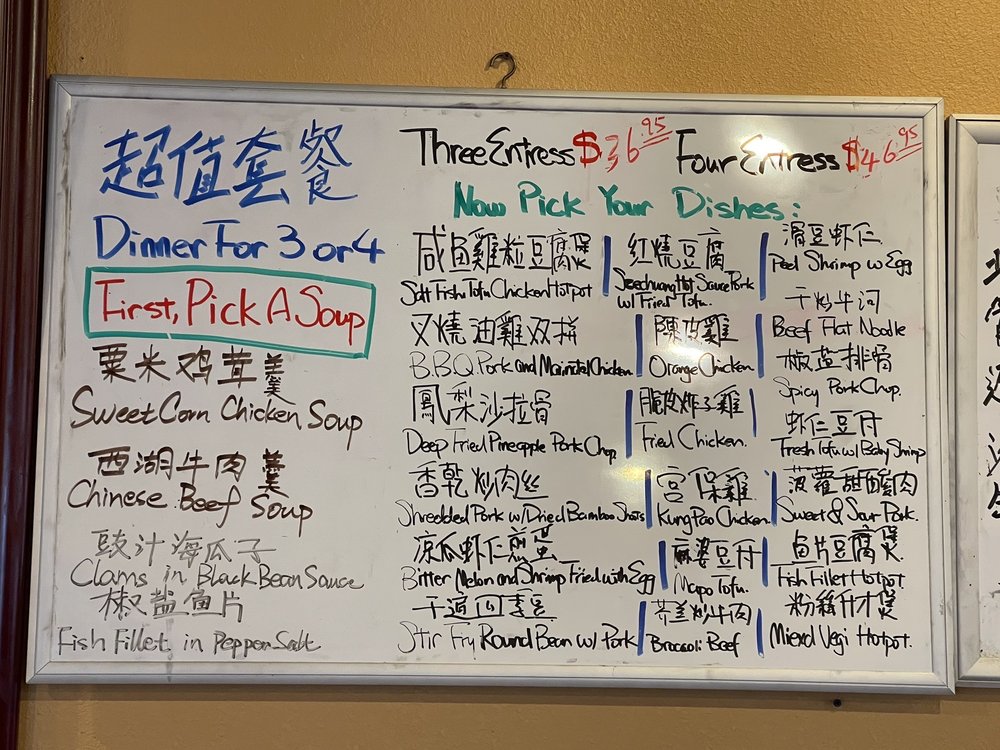 超值套餐
Dinner For 3 or 4
First, Pick A Soup
粟米鸡茸羹
Sweet Corn Chicken Soup
西湖牛肉羹
Chinese Beef Soup
豉汁海瓜子
Clams in Black Bean Sauce
椒盐鱼片
Fish Fillet in Pepper Salt
Three Entress $36.95
Four Entress $46.95
Now Pick Your Dishes:
咸鱼雞粒豆腐煲
Salt Fish Tofu Chicken Hotpot
叉燒油雞双拼
B.B.Q Pork and Chicken
鳳梨沙拉骨
Deep Fried Pineapple Pork Chop
香乾炒肉丝
Shredded Pork w/ Dried Bamboo Shots
凉瓜虾仁煎蛋
Bitter Melon and Shrimp Fried with Egg
干逼四季豆
Stir Fry Round Bean w/ Pork
红燒豆腐
Szechuang Hot Sauce Pork
w/ Fried Tofu.
陳皮雞
Orange Chicken
脆皮炸子雞
Fried Chicken.
宫保雞
Kung Pao Chicken.
麻婆豆付
Mapo Tofu.
芥兰炒牛肉
Broccoli Beef
滑豆虾仁
Peel Shrimp w Egg
干炒牛河
Beef Flat Noodle
椒盐排骨
Spicy Pork Chop.
虾仁豆付
Fresh Tofu w/ Baby Shrimp
菠蘿甜酸肉
Sweet & Sour Pork.
鱼片豆腐煲
Fish Fillet Hotpot
粉絲什才煲
Miexd Vegi Hotpot.